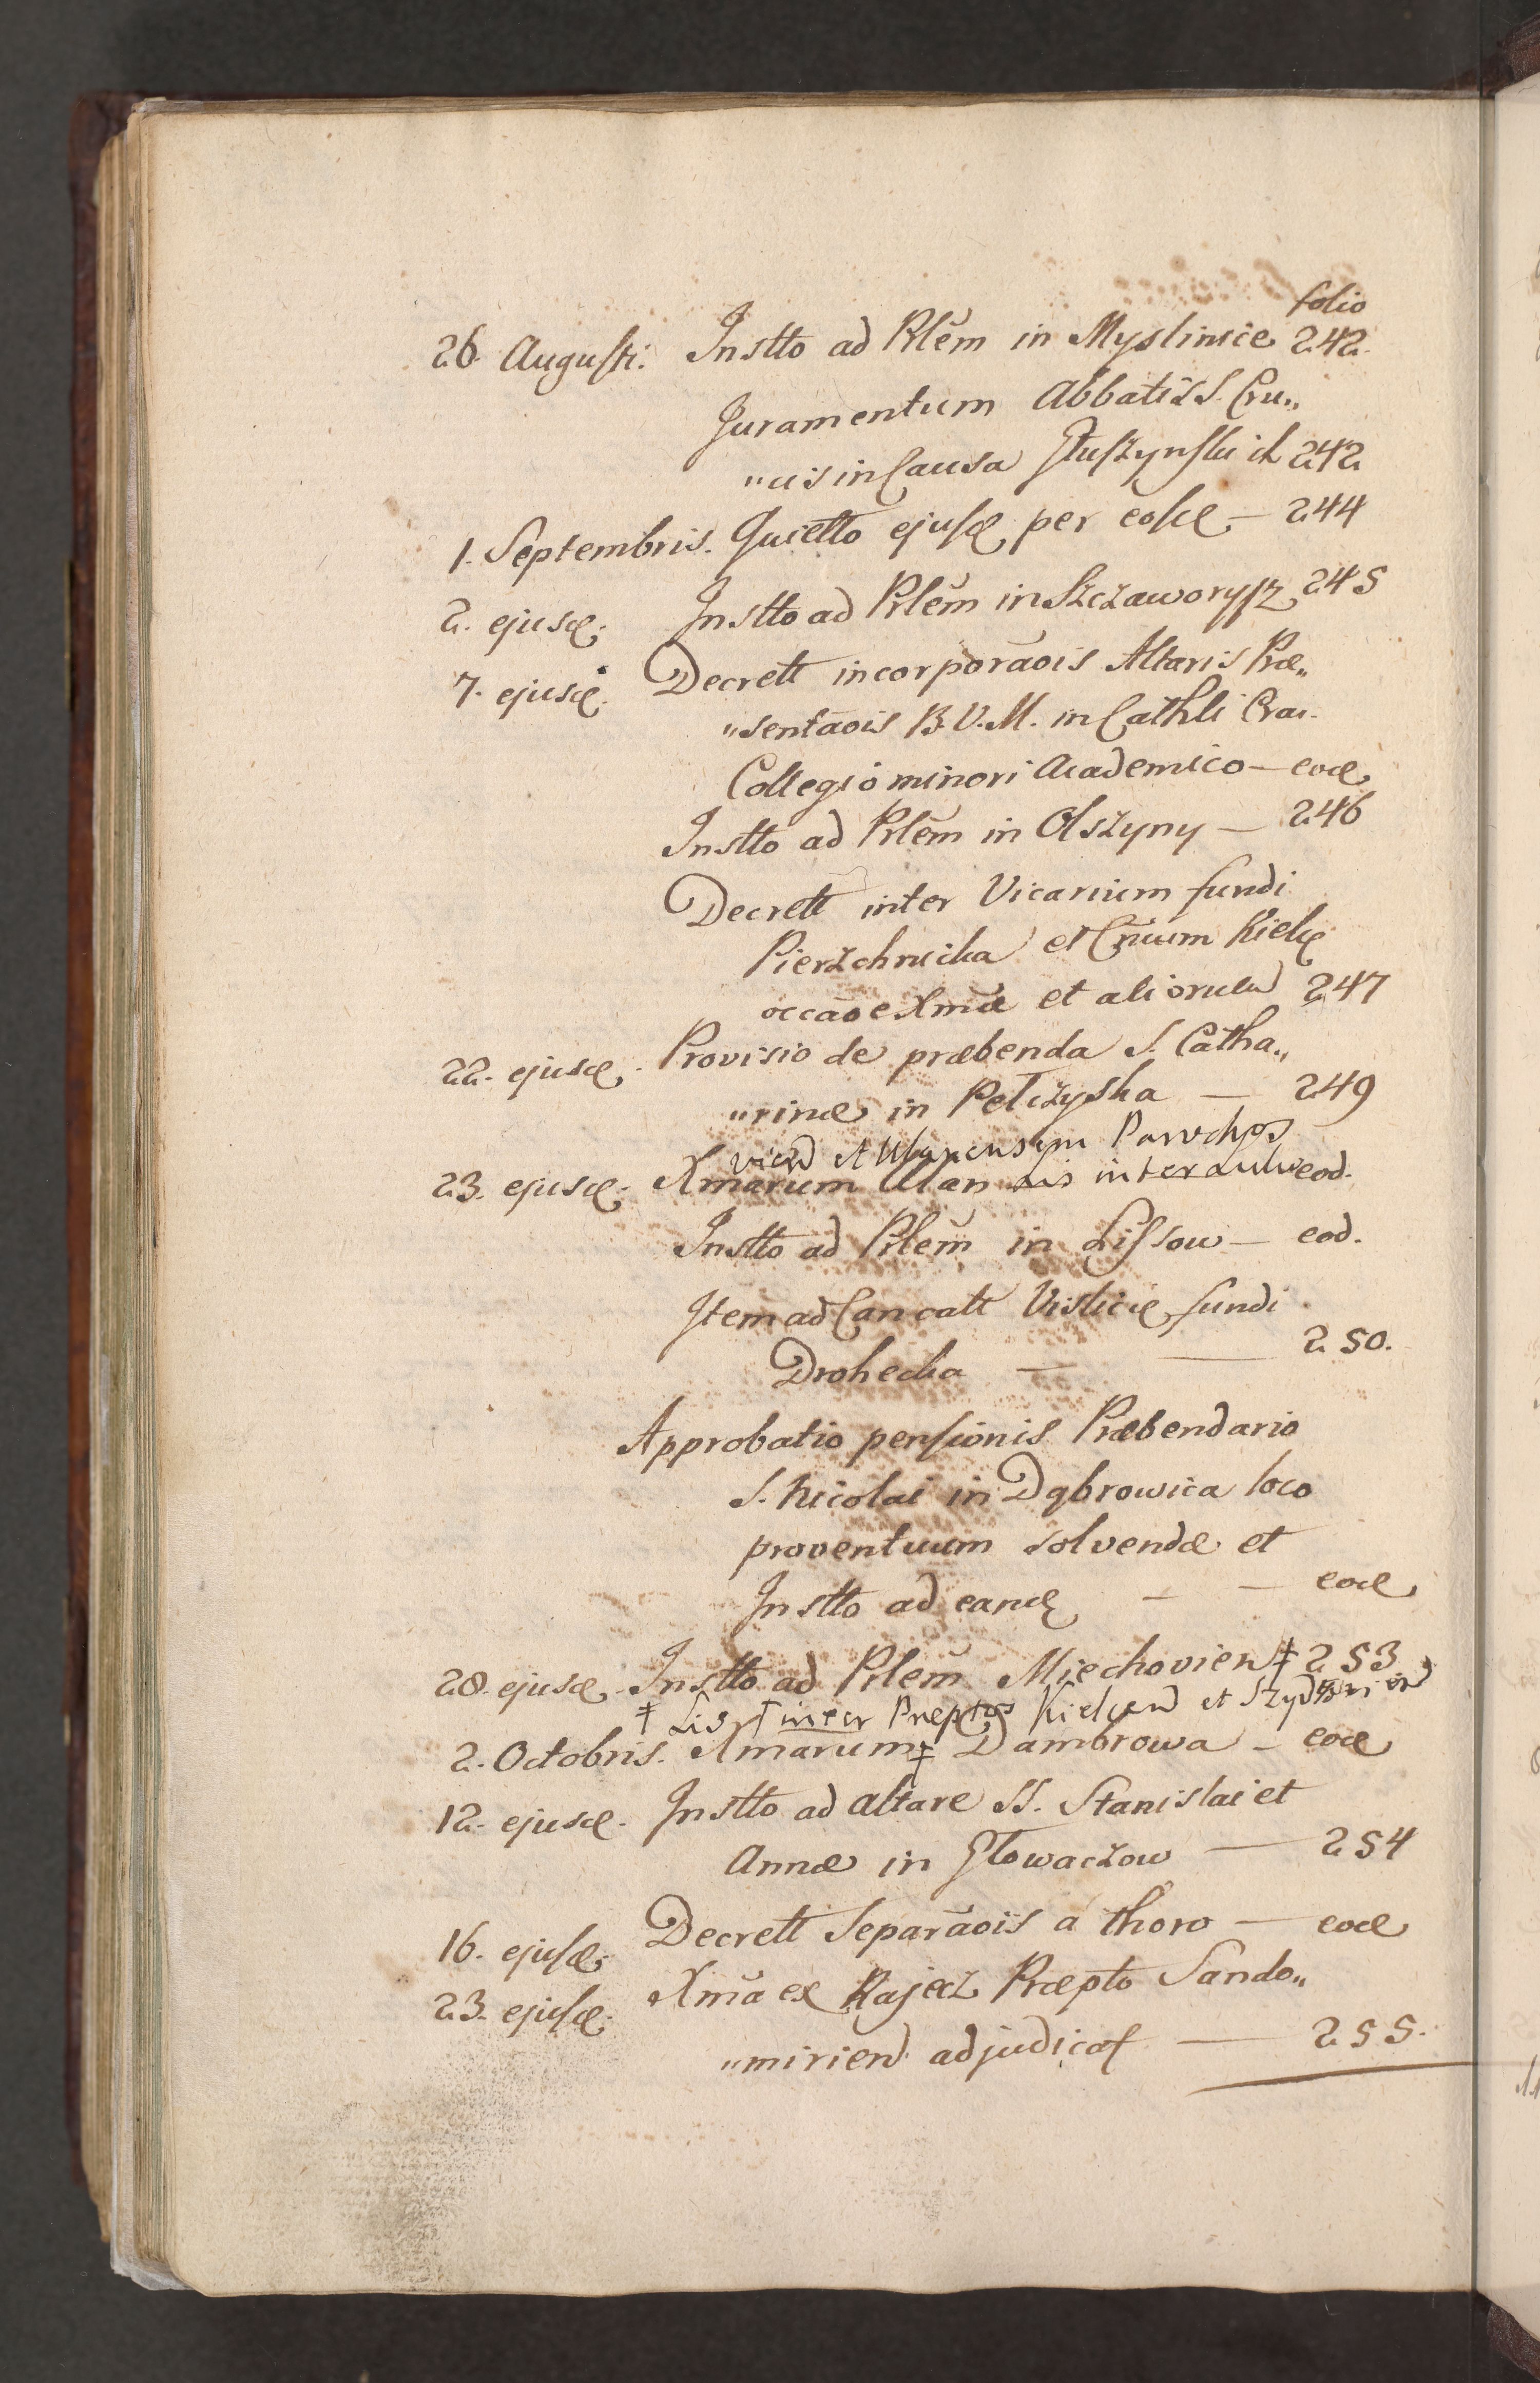 folio
26. Augusti. Instto ad Plēm in Myslinice 242.
Juramentum Abbatis S. Cru„
„cis in Causa Głuszynski ch 242
1. Septembris. Quietto ejusd per eosd — 244
2. ejusd. Instto ad Plēm in Szczaworysz 245
7. ejusd. Decrett incorporāois Altaris Præ„
„sentāois B.V.M. in Cathli Crac.
Collegio minori Academico — eod
Instto ad Plēm in Olszyny — 246
Decrett inter Vicarium fundi
Pierzchnicka et Cnūm Kielc
occāoe Xmæ et aliorum 247
22. ejusd. Provisio de præbenda S. Catha„
„rinæ in Pełczyska — 249
Parochos
23. ejusd. Xmarum Ulan Lis inter eod.
Instto ad Plēm in Lissow — eod.
Item ad Can catt Vislicie fundi
Drohecka — — 250.
Approbatio pensionis Præbendario
S. Nicolai in Dąbrowica loco
proventuum solvendæ et
Instto ad eand — — eod
28. ejusd. Instto ad Plēm Miechovien ‡ 253
‡ Lis inter Præptos Kielcen et
2. Octobris. Xmarum ‡ Dambrowa — eod
12. ejusd. Instto ad altare SS. Stanislai et
Annæ in Głowaczow — 254
16. ejusd. Decrett Separāois a thoro — eod
23. ejusd. Xma ex Rajecz Præpto Sando„
„mirien adjudicat — 255.